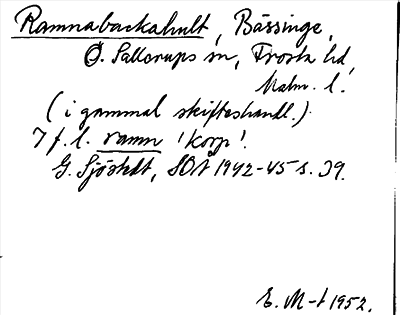 Ramnabackahult, Bässinge,
Ö. Sallerups sn, Frosta hd,
Malm. l.
(i gammal skifteshandl.).
I f. l. ramn 'korp'.
G. Sjöstedt, SOÅ 1942-45 s. 39.
E. M-t 1952.